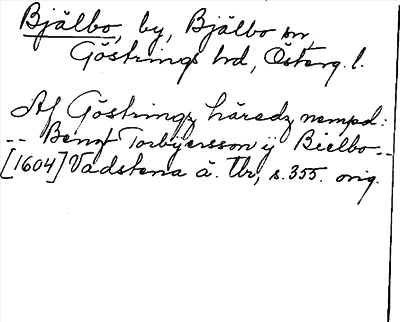 Bjälbo, by, Bjälbo sn,
Göstrings hrd, Österg. l.
Af Göstringz häredz nempd:
-- Bengt Torbijersson ÿ Bielbo --
[1604] Vadstena ä. Tbr, s. 355. orig.